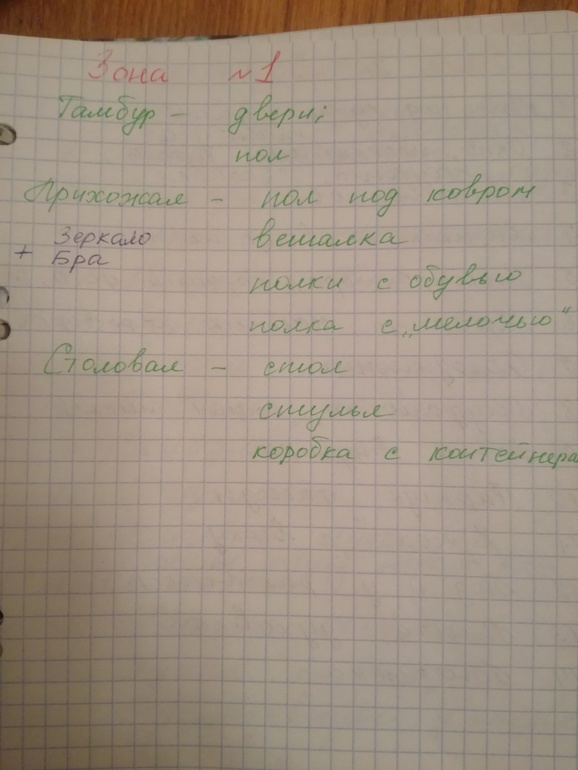 Зона №1
Тамбур – двери;
пол
Прихожая – пол под ковром
+ Зеркало вешалка
Бра
полки с обувью
полка с „мелочью“
Столовая – стол
стулья
коробка с контейнера